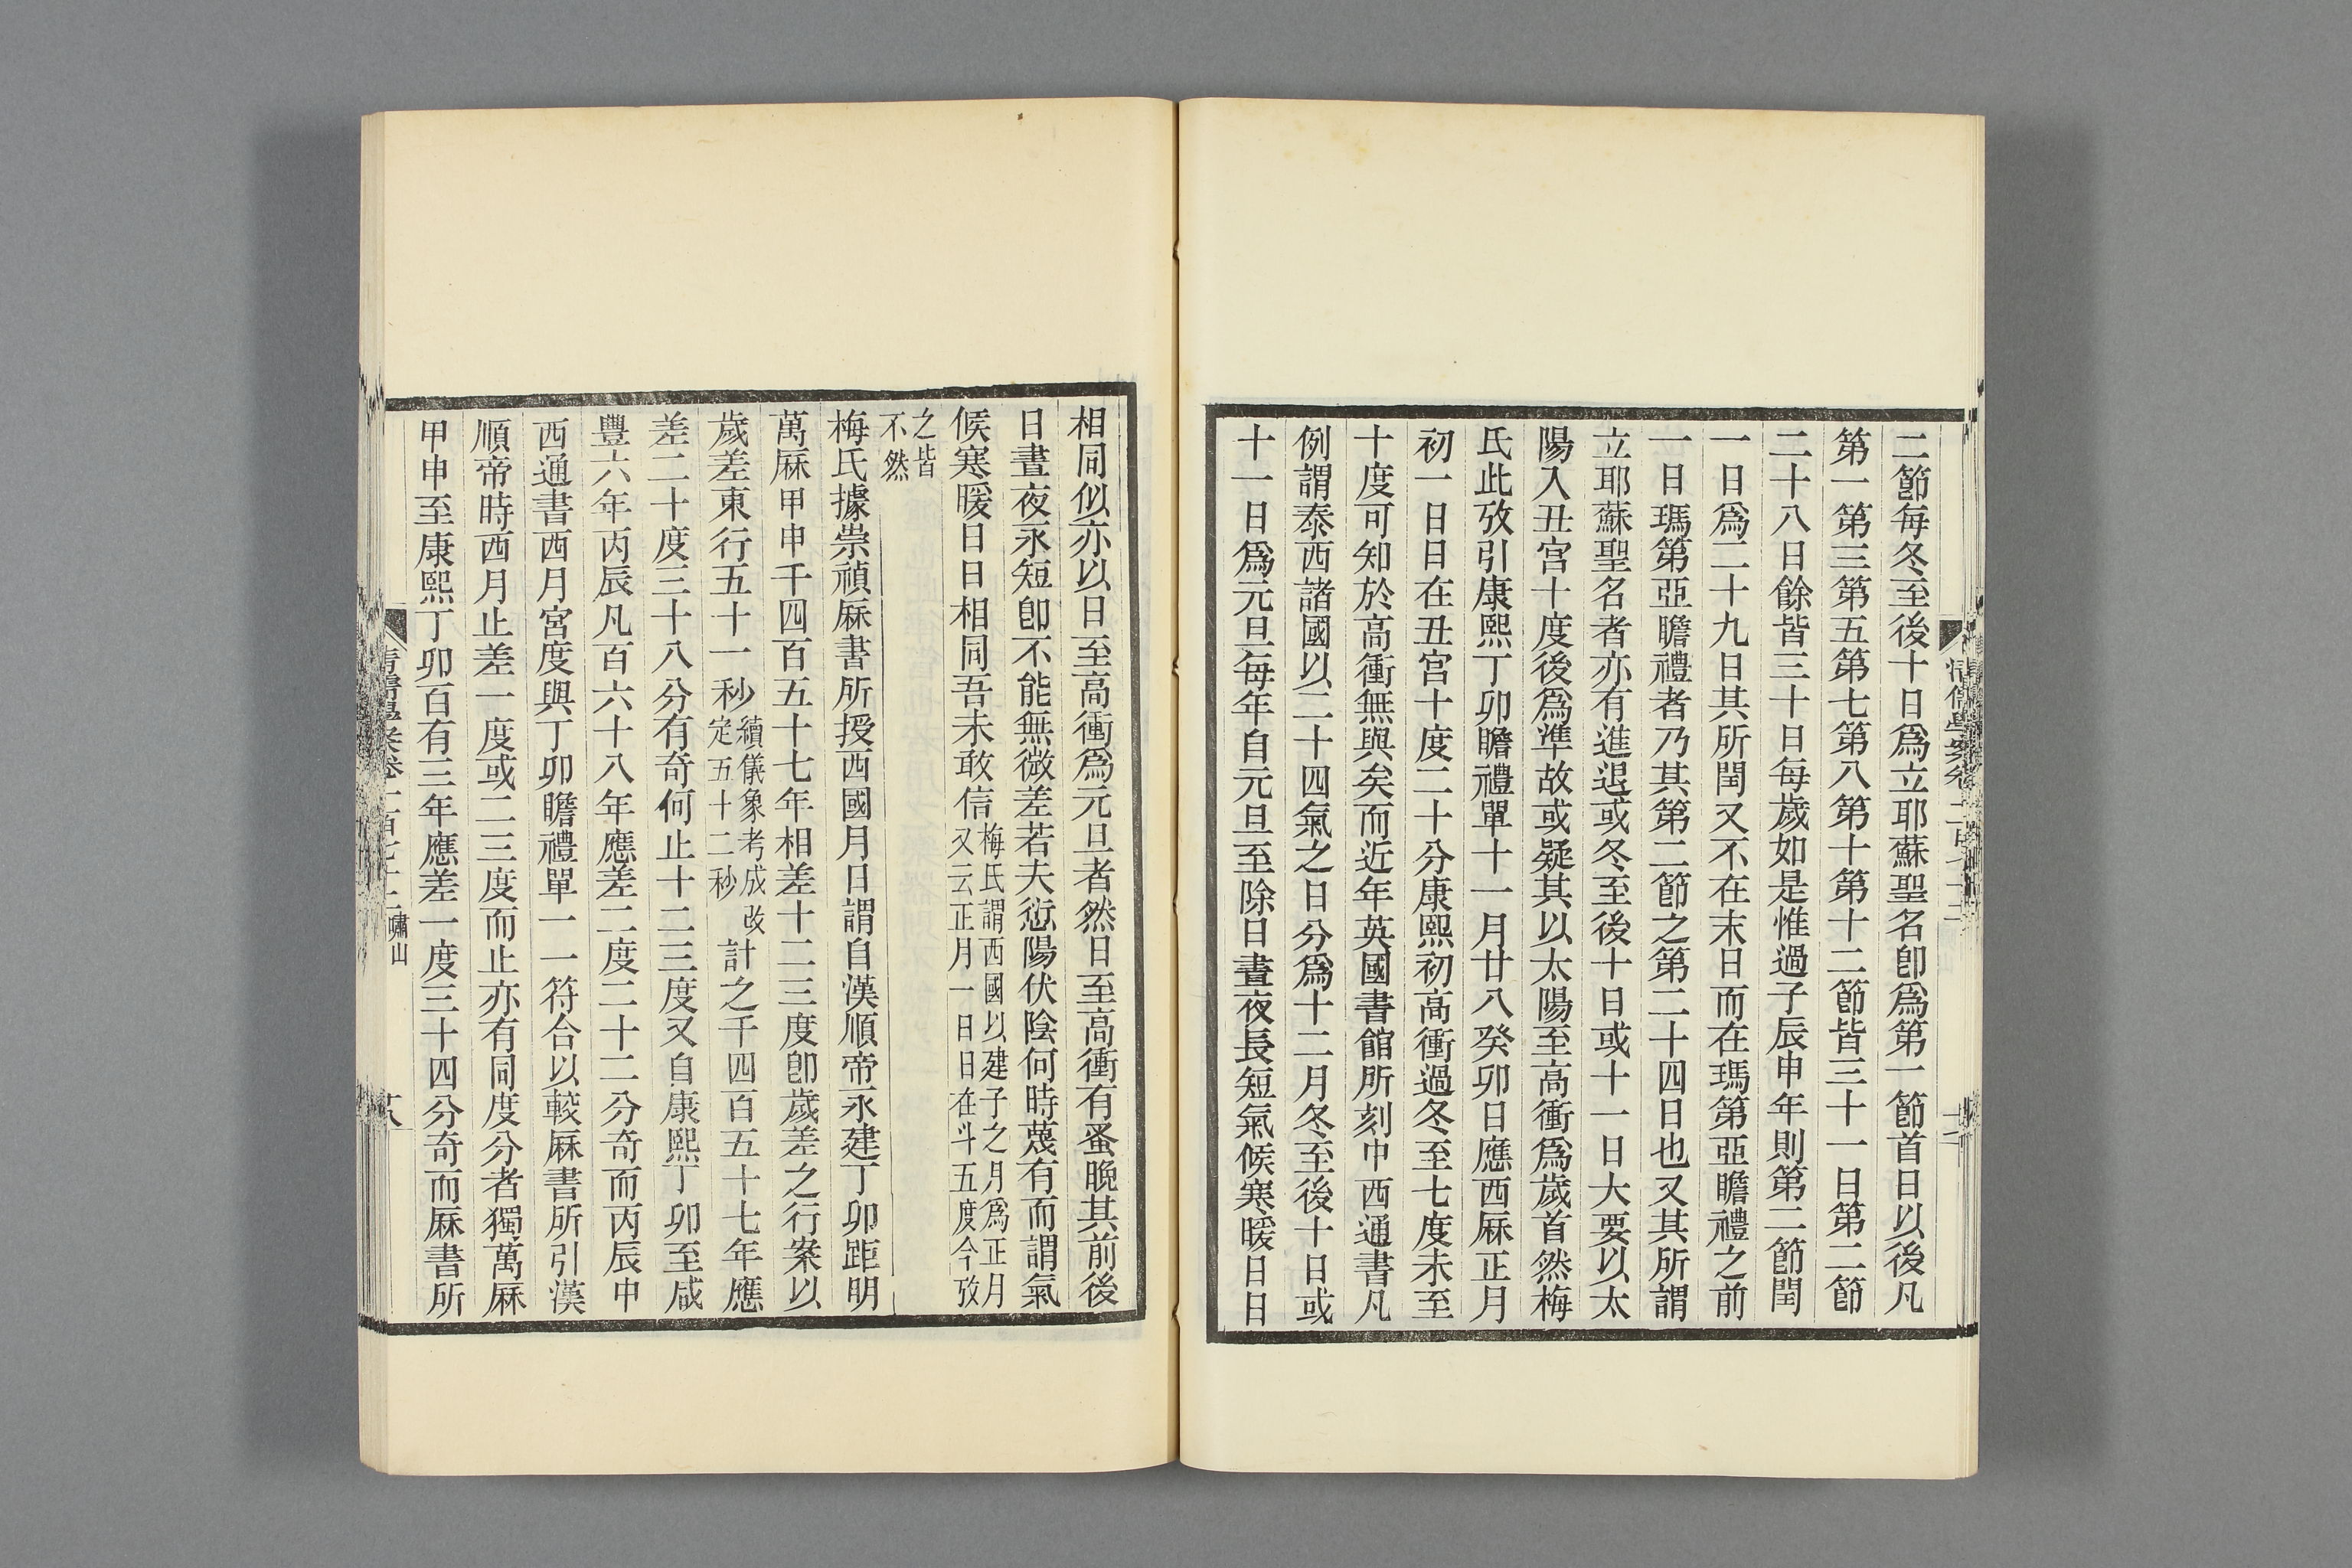 二節每冬至後十日爲立耶蘇聖名卽爲第一節首日以後凡
第一第三第五第七第八第十第十二節皆三十一日第二節
二十八日餘皆三十日每歲如是惟過子辰申年則第二節閏
一日爲二十九日其所閏又不在末日而在瑪第亞瞻禮之前
一日瑪第亞瞻禮者乃其第二節之第二十四日也又其所謂
立耶蘇聖名者亦有進退或冬至後十日或十一日大要以太
陽入丑宮十度後爲準故或疑其以太陽至高衝爲歲首然梅
氏此攷引康熙丁卯瞻禮單十一月廿八癸卯日應西厤正月
初一日日在丑宮十度二十分康熙初高衝過冬至七度未至
十度可知於高衝無與矣而近年英國書館所刻中西通書凡
例謂泰西諸國以二十四氣之日分爲十二月冬至後十日或
十一日爲元旦每年自元旦至除日晝夜長短氣候寒暖日日
相同似亦以日至高衝爲元旦者然日至高衝有蚤晚其前後
日晝夜永短卽不能無微差若夫愆陽伏陰何時蔑有而謂氣
候寒暖日日相同吾未敢信梅氏謂西國以建子之月爲正月
又云正月一日日在斗五度今攷
之皆
不然
梅氏據崇禎厤書所授西國月日謂自漢順帝永建丁卯距明
萬厤甲申千四百五十七年相差十二三度卽歲差之行案以
歲差東行五十一秒續儀象考成改
定五十二秒計之千四百五十七年應
差二十度三十八分有奇何止十二三度又自康熙丁卯至咸
豐六年丙辰凡百六十八年應差二度二十二分奇而丙辰中
西通書西月宮度與丁卯瞻禮單一一符合以較厤書所引漢
順帝時西月止差一度或二三度而止亦有同度分者獨萬厤
甲申至康熙丁卯百有三年應差一度三十四分奇而厤書所
嘯山